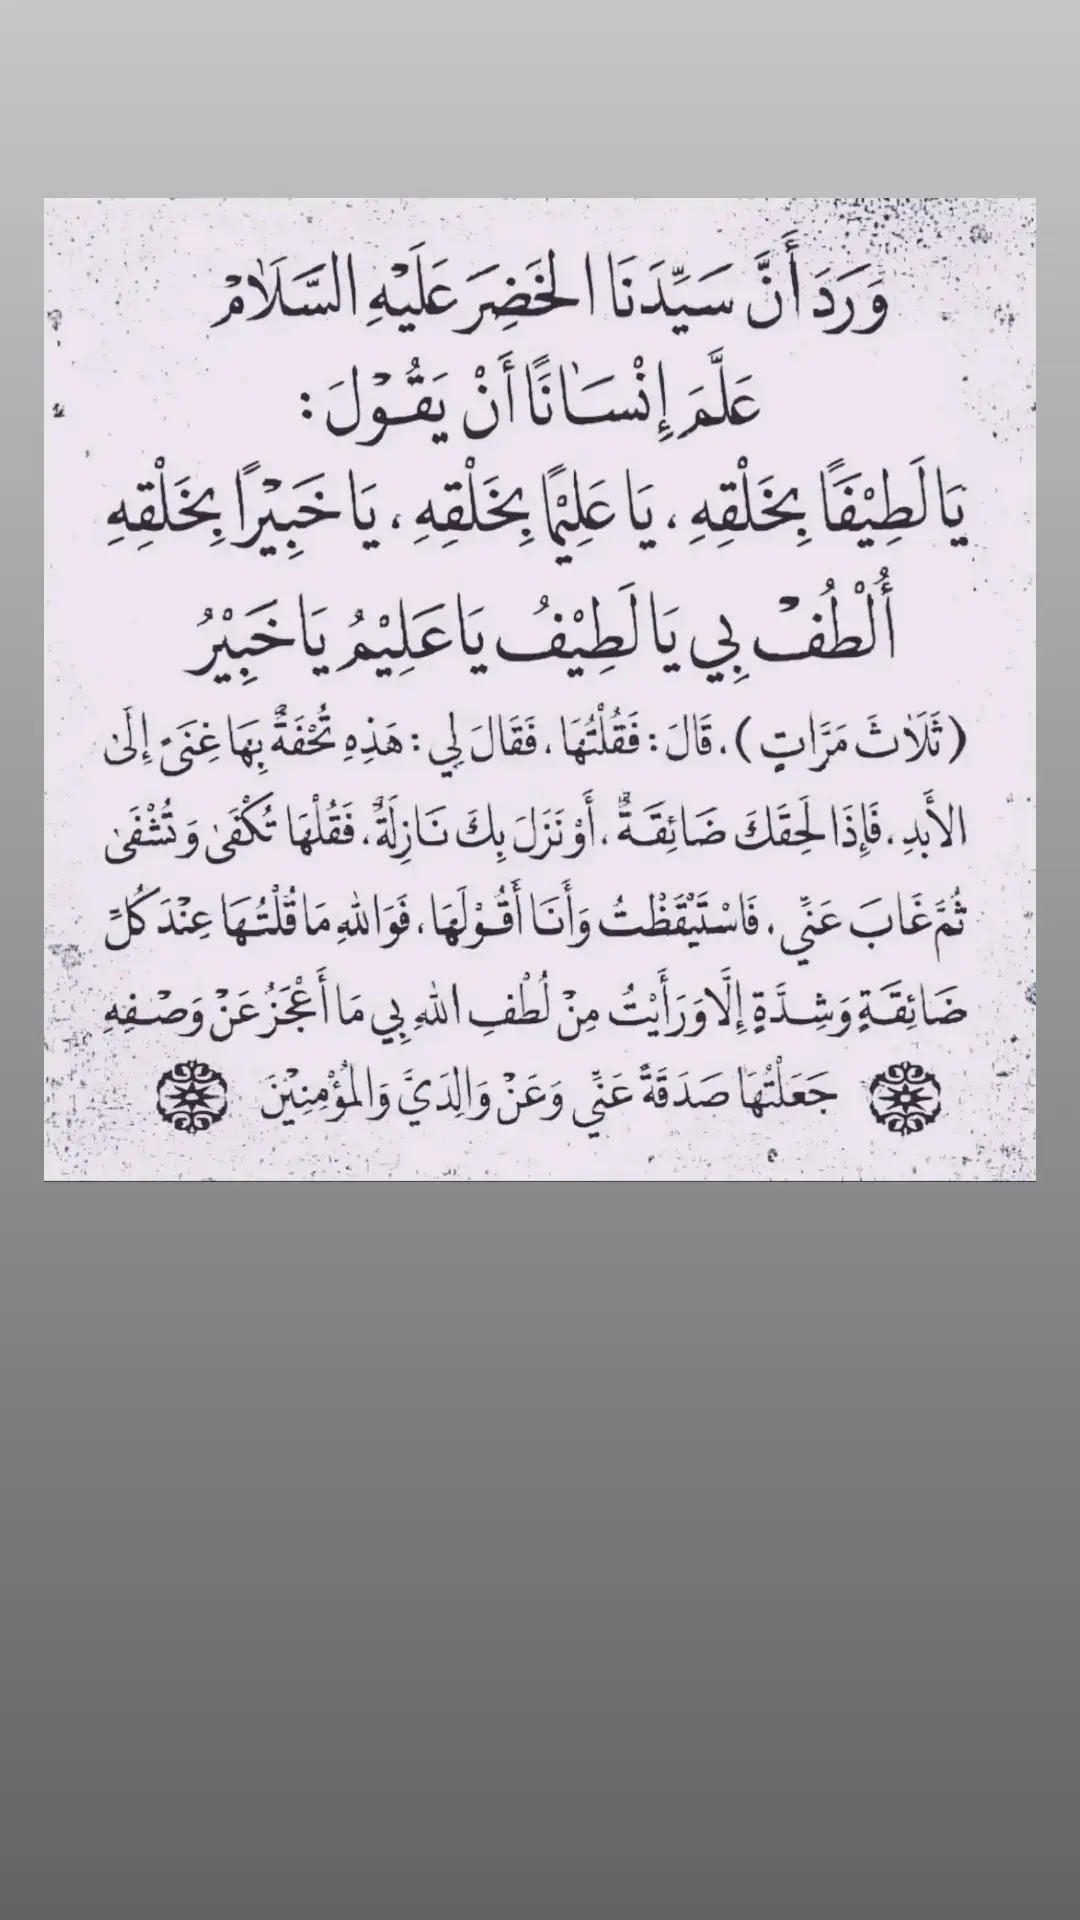 وَرَدَ أَنَّ سَيِّدَنَا الْخَضِرَ عَلَيْهِ السَّلَامْ
عَلَّمَ إِنْسَانًا أَنْ يَقُوْلَ :
يَا لَطِيْفًا بِخَلْقِهِ ، يَا عَلِيْمًا بِخَلْقِهِ ، يَا خَبِيْرًا بِخَلْقِهِ
أُلْطُفْ بِي يَا لَطِيْفُ يَا عَلِيْمُ يَا خَبِيْرُ
(ثَلَاثَ مَرَّاتٍ) ، قَالَ : فَقُلْتُهَا ، فَقَالَ لِي : هَذِهِ تُحْفَةٌ بِهَا غِنَىً إِلَىٰ
الأَبَدِ ، فَإِذَا لَحِقَكَ ضَائِقَةٌ ، أَوْ نَزَلَ بِكَ نَازِلَةٌ ، فَقُلْهَا تُكْفَىٰ وَتُشْفَىٰ
ثُمَّ غَابَ عَنِّي ، فَاسْتَيْقَظْتُ وَأَنَا أَقُوْلَهَا ، فَوَاللهِ مَا قُلْتُهَا عِنْدَ كُلِّ
ضَائِقَةٍ وَشِدَّةٍ إِلَّا وَرَأَيْتُ مِنْ لُطْفِ اللهِ بِي مَا أَعْجَزُ عَنْ وَصْفِهِ
جَعَلْتُهَا صَدَقَةً عَنِّي وَعَنْ وَالِدَيَّ وَالمُؤْمِنِيْنَ